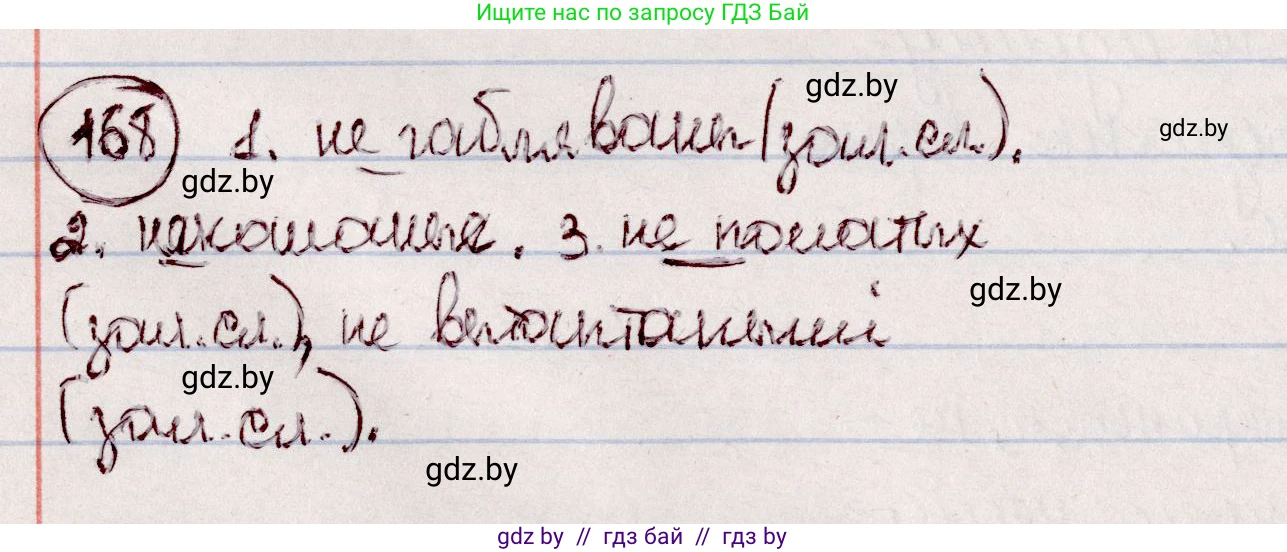 Ищите нас по запросу ГДЗ Бай
gdz.by
168 1. не габляваны (зал. сл.).
gdz.by
gdz.by
2. някошаныя. 3. не памятых
gdz.by
(зал. сл.), не вытаптанымі
gdz.by
(зал. сл.).
gdz.by
gdz.by // гдз бай // гдз by